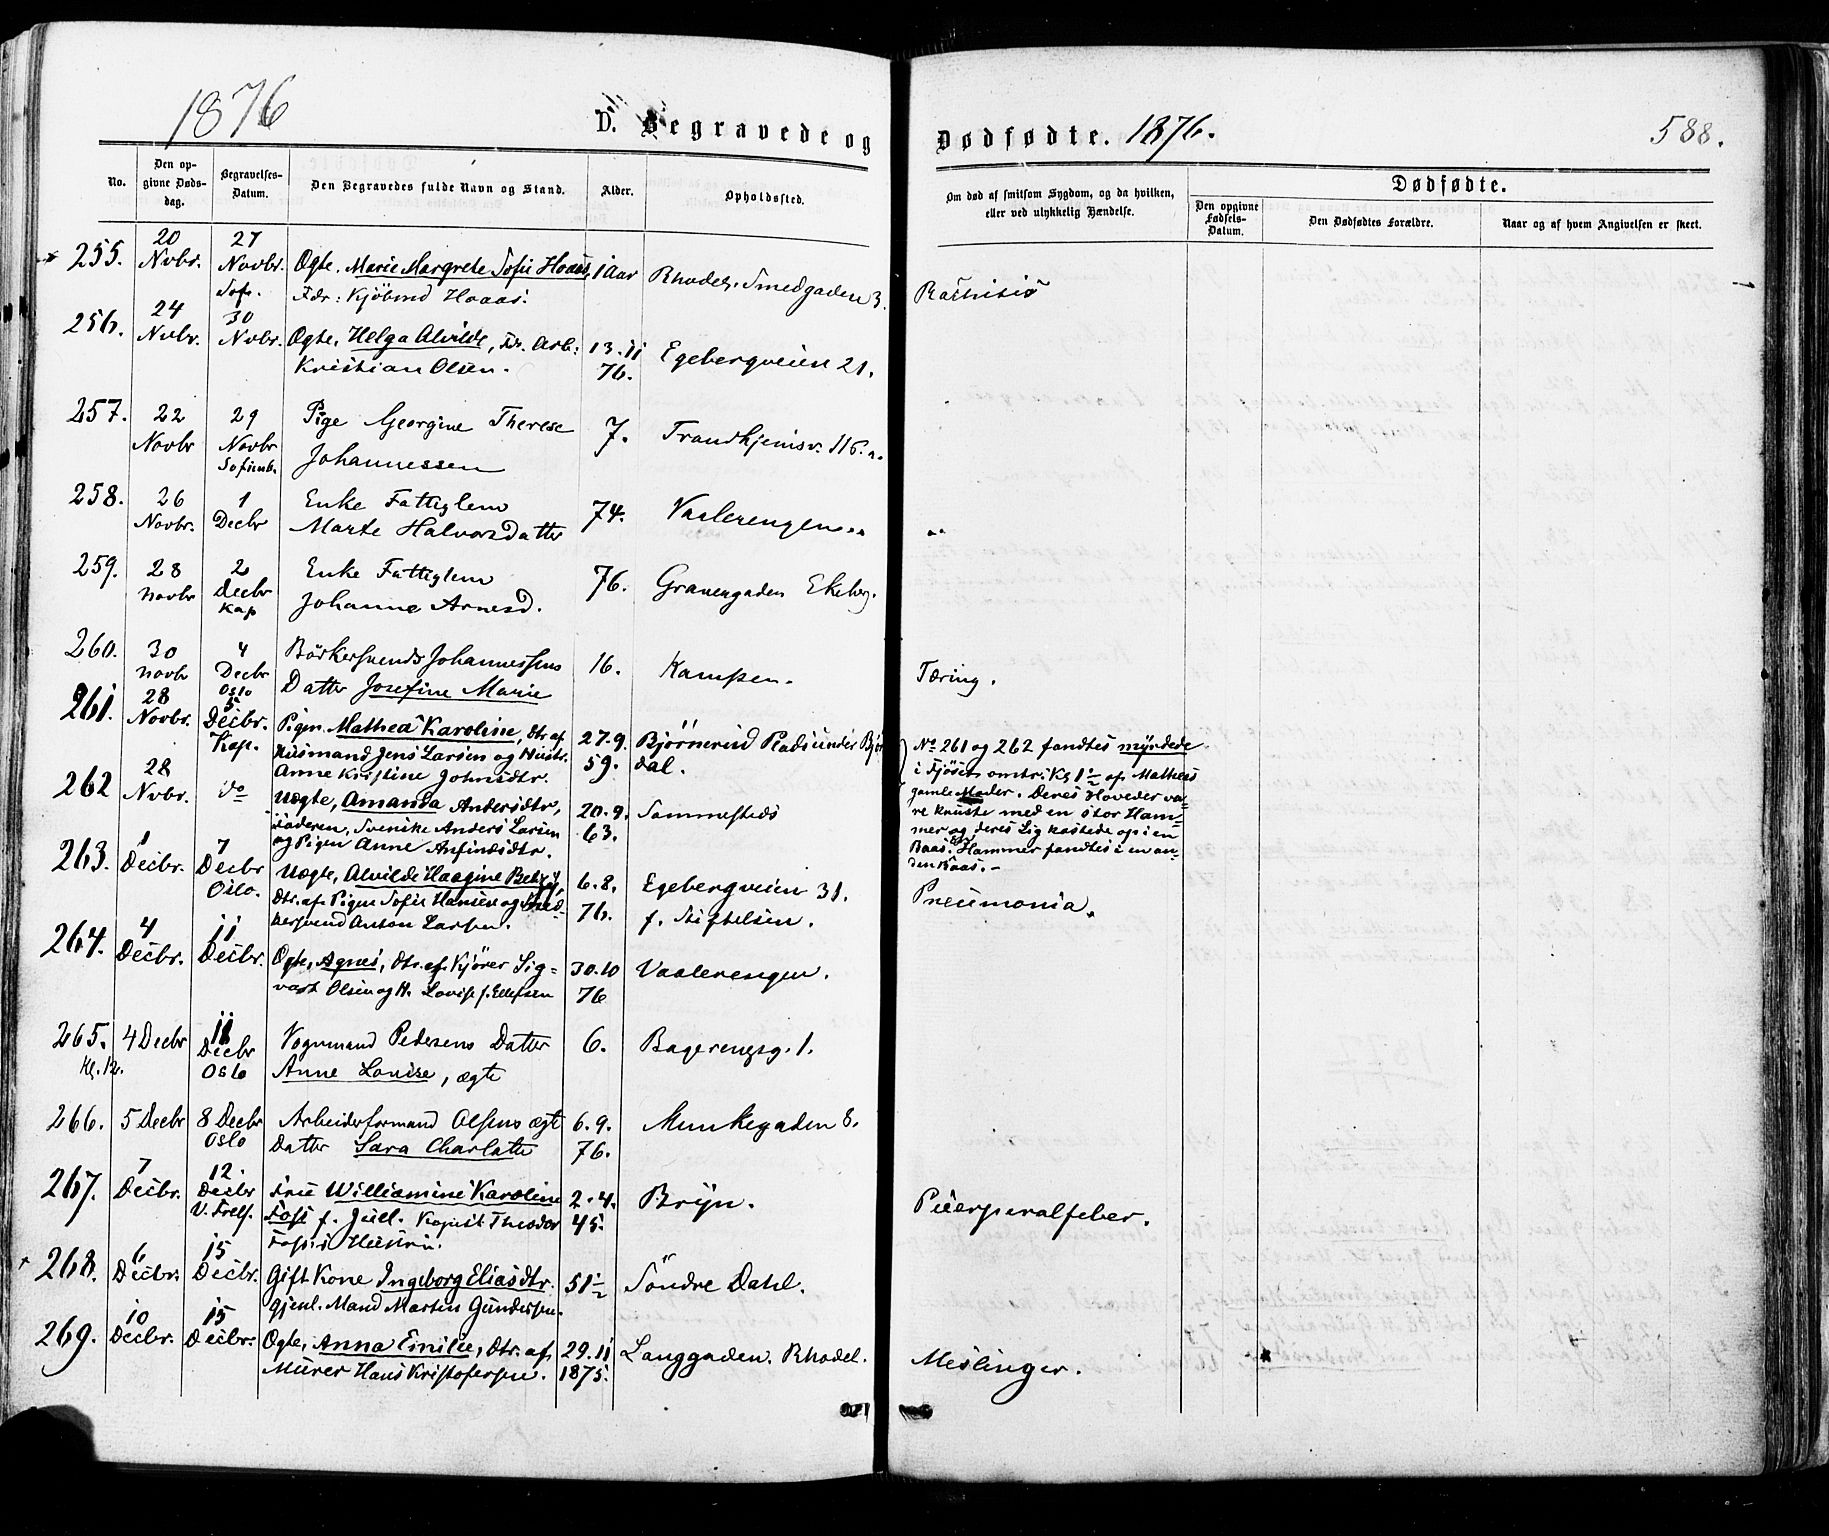 1876
D. Begravede og
Dødfødte. 1876.
588.
No.
Den opgivne Døds-
dag.
Begravelses-
Datum.
Den Begravedes fulde Navn og Stand.
Alder.
Opholdssted.
Om død af smitsom Sygdom, og da hvilken,
eller ved ulykkelig Hændelse.
Dødfødte.
Den opgivne
Fødsels-
Datum.
Den Dødfødtes Forældre.
Naar og af hvem Angivelsen er skeet.
255. 20 Novbr. 27 Novbr. Sofr. Ægte, Marie Margrete Sofie Haaas, 1 Aar Rhodel. Smedgaden 3. Rachitis
Fdr: Kjöbmd Haaas.
256. 24 Nvbr. 30 Nvbr. Ægte, Helga Alvilde, Fr. Arb: 13.11 Egebergveien 21.
Kristian Olsen. 76.
257. 22 Novbr 29 Novbr Sofienb. Pige Georgine Therese 7. Trondhjemsv. 116. a.
Johannessen
258. 26 Novbr. 1 Decbr Enke Fattiglem 74. Vaalerengen „ „
Marte Halvorsdatter
259. 28 Novbr 2 Decbr Kap Enke Fattiglem 76. Gravergaden Ekeberg.
Johanne Arnesd.
260. 30 Novbr 4 Decbr Oslo Börkersvends Johannessens 16. Kampen. Tæring.
Datter Josefine Marie
261. 28 Novbr. 5 Decbr. Kap. Pigen Mathea Karoline, dtr. af 27.9. Bjørnerud Plads under Bjør
Husmand Jens Larsen og Hustr. 59. dal.
Anne Kristine Johnsdtr.
262 28 Nvbr. do Uægte, Amanda Andersdtr, 20.9. Sammesteds
Faderen, Svenske Anders Larsen 63.
og Pigen Anne Anfindsdtr.
No 261 og 262 fandtes myrdede
i Fjøset omtr. Kl 1½ af Matheas
gamle Moder. Deres Hoveder va-
re knuste med en stor Ham-
mer og deres Lig kastede op i en
Baas. Hammer fandtes i en an-
den Baas. —
263. 1 Decbr. 7 Decbr Oslo. Uægte, Alvilde Haagine Betzy, 6.8. Egebergveien 31. Pneumonia.
dtr. af Pigen Sofie Hansen og Sned- 76. f. Stiftelsen.
kersvend Anton Larsen.
264. 4 Decbr. 11 Decbr. Ægte, Agnes, dtr. af Kjører Sig- 30.10 Vaalerengen.
vart Olsen og H. Lovise f. Ellefsen 76
265. 4 Decbr 11 Decbr Oslo Vognmand Pedersens Datter 6. Bagerengsg. 1.
Kl. 12. Anne Louise, ægte
266. 5 Decbr 8 Decbr Oslo Arbeiderformand Olsens ægt 6.9. Munkegaden 8.
Datter Sara Charlotte 76.
267. 7 Decbr. 12. Decbr V. Frels. Frue Williamine Karoline 2.4. Bryn. Puerperalfeber.
Foss f. Juel. Kopist Theodor 45.
Foss's Hustru.
268. 6 Decbr. 15 Decbr. Gift Kone Ingeborg Eliasdtr. 51½ Söndre Dahl.
gjenl. Mand Marten Gundersen.
269. 10 Decbr. 15 Decbr. Ægte, Anna Emilie, dtr. af 29.11 Langgaden. Rhodel. Meslinger.
Murer Hans Kristofersen. 1875.